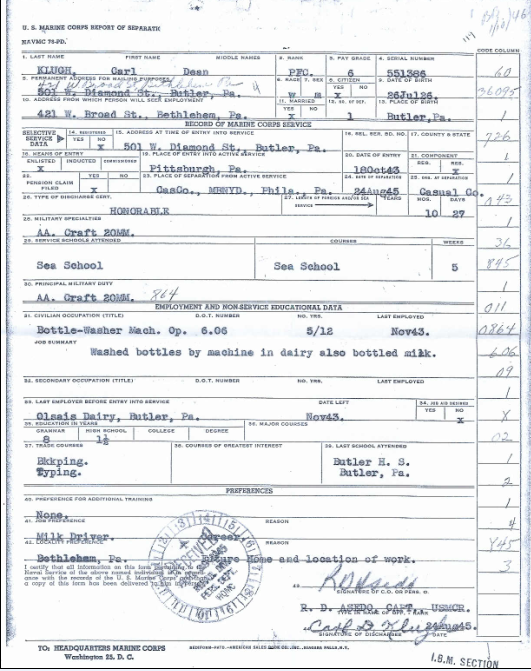 U. S. MARINE CORPS REPORT OF SEPARATION
NAVMC 78-PD.
CODE COLUMN
1. LAST NAME FIRST NAME MIDDLE NAMES 2. RANK 3. PAY GRADE 4. SERIAL NUMBER
KLUGH, Carl Dean PFC. 6 551386 60
5. PERMANENT ADDRESS FOR MAILING PURPOSES 6. RACE 7. SEX 8. CITIZEN YES NO 9. DATE OF BIRTH
501 W. Diamond St., Butler, Pa. W M X 26Jul26. 36095
10. ADDRESS FROM WHICH PERSON WILL SEEK EMPLOYMENT 11. MARRIED YES NO 12. NO. OF DEP. 13. PLACE OF BIRTH
421 W. Broad St., Bethlehem, Pa. X 1 Butler,Pa. 1
RECORD OF MARINE CORPS SERVICE
SELECTIVE SERVICE DATA 14. REGISTERED YES NO 15. ADDRESS AT TIME OF ENTRY INTO SERVICE 16. SEL. SER. BD. NO. 17. COUNTY & STATE
X 501 W. Diamond St., Butler, Pa. 726
18. MEANS OF ENTRY 19. PLACE OF ENTRY INTO ACTIVE SERVICE 20. DATE OF ENTRY 21. COMPONENT
ENLISTED INDUCTED REG. RES.
X Pittsburgh, Pa. 18Oct43 X 1
22. PENSION CLAIM FILED YES NO 23. PLACE OF SEPARATION FROM ACTIVE SERVICE 24. DATE OF SEPARATION 25. ORG. AT SEPARATION
X CasCo., MBNYD, Phila., Pa. 24Aug45 Casual Co. 1
26. TYPE OF DISCHARGE CERT. 27. LENGTH OF FOREIGN AND/OR SEA SERVICE YEARS MOS. DAYS
HONORABLE 10 27 043
28. MILITARY SPECIALTIES
AA. Craft 20MM. 1
29. SERVICE SCHOOLS ATTENDED COURSES WEEKS
Sea School Sea School 5 845
30. PRINCIPAL MILITARY DUTY
AA. Craft 20MM. 864 1
EMPLOYMENT AND NON-SERVICE EDUCATIONAL DATA 011
31. CIVILIAN OCCUPATION (TITLE) D.O.T. NUMBER NO. YRS. LAST EMPLOYED
Bottle-Washer Mach. Op. 6.06 5/12 Nov43. 0864
JOB SUMMARY
Washed bottles by machine in dairy also bottled milk. 606
09
32. SECONDARY OCCUPATION (TITLE) D.O.T. NUMBER NO. YRS. LAST EMPLOYED
1
33. LAST EMPLOYER BEFORE ENTRY INTO SERVICE DATE LEFT 34. JOB AID DESIRED YES NO
Olsais Dairy, Butler, Pa. Nov43. X X
35. EDUCATION IN YEARS 36. MAJOR COURSES
GRAMMAR HIGH SCHOOL COLLEGE DEGREE
8 1½ 02
37. TRADE COURSES 38. COURSES OF GREATEST INTEREST 39. LAST SCHOOL ATTENDED
Bkkping. Butler H. S. 1
Typing. Butler, Pa. 2
PREFERENCES
40. PREFERENCE FOR ADDITIONAL TRAINING
None. 1
41. JOB PREFERENCE REASON
Milk Driver. Career. 4
42. LOCALITY PREFERENCE REASON
Bethlehem, Pa. Future Home and location of work. 3
I certify that all information on this form
SIGNATURE OF C.O. OR PERS. O.
R. D. ASEDO, CAPT., USMCR.
Carl D Klugh 24Aug45.
SIGNATURE OF DISCHARGEE DATE
TO: HEADQUARTERS MARINE CORPS
Washington 25, D. C.
I.B.M. SECTION